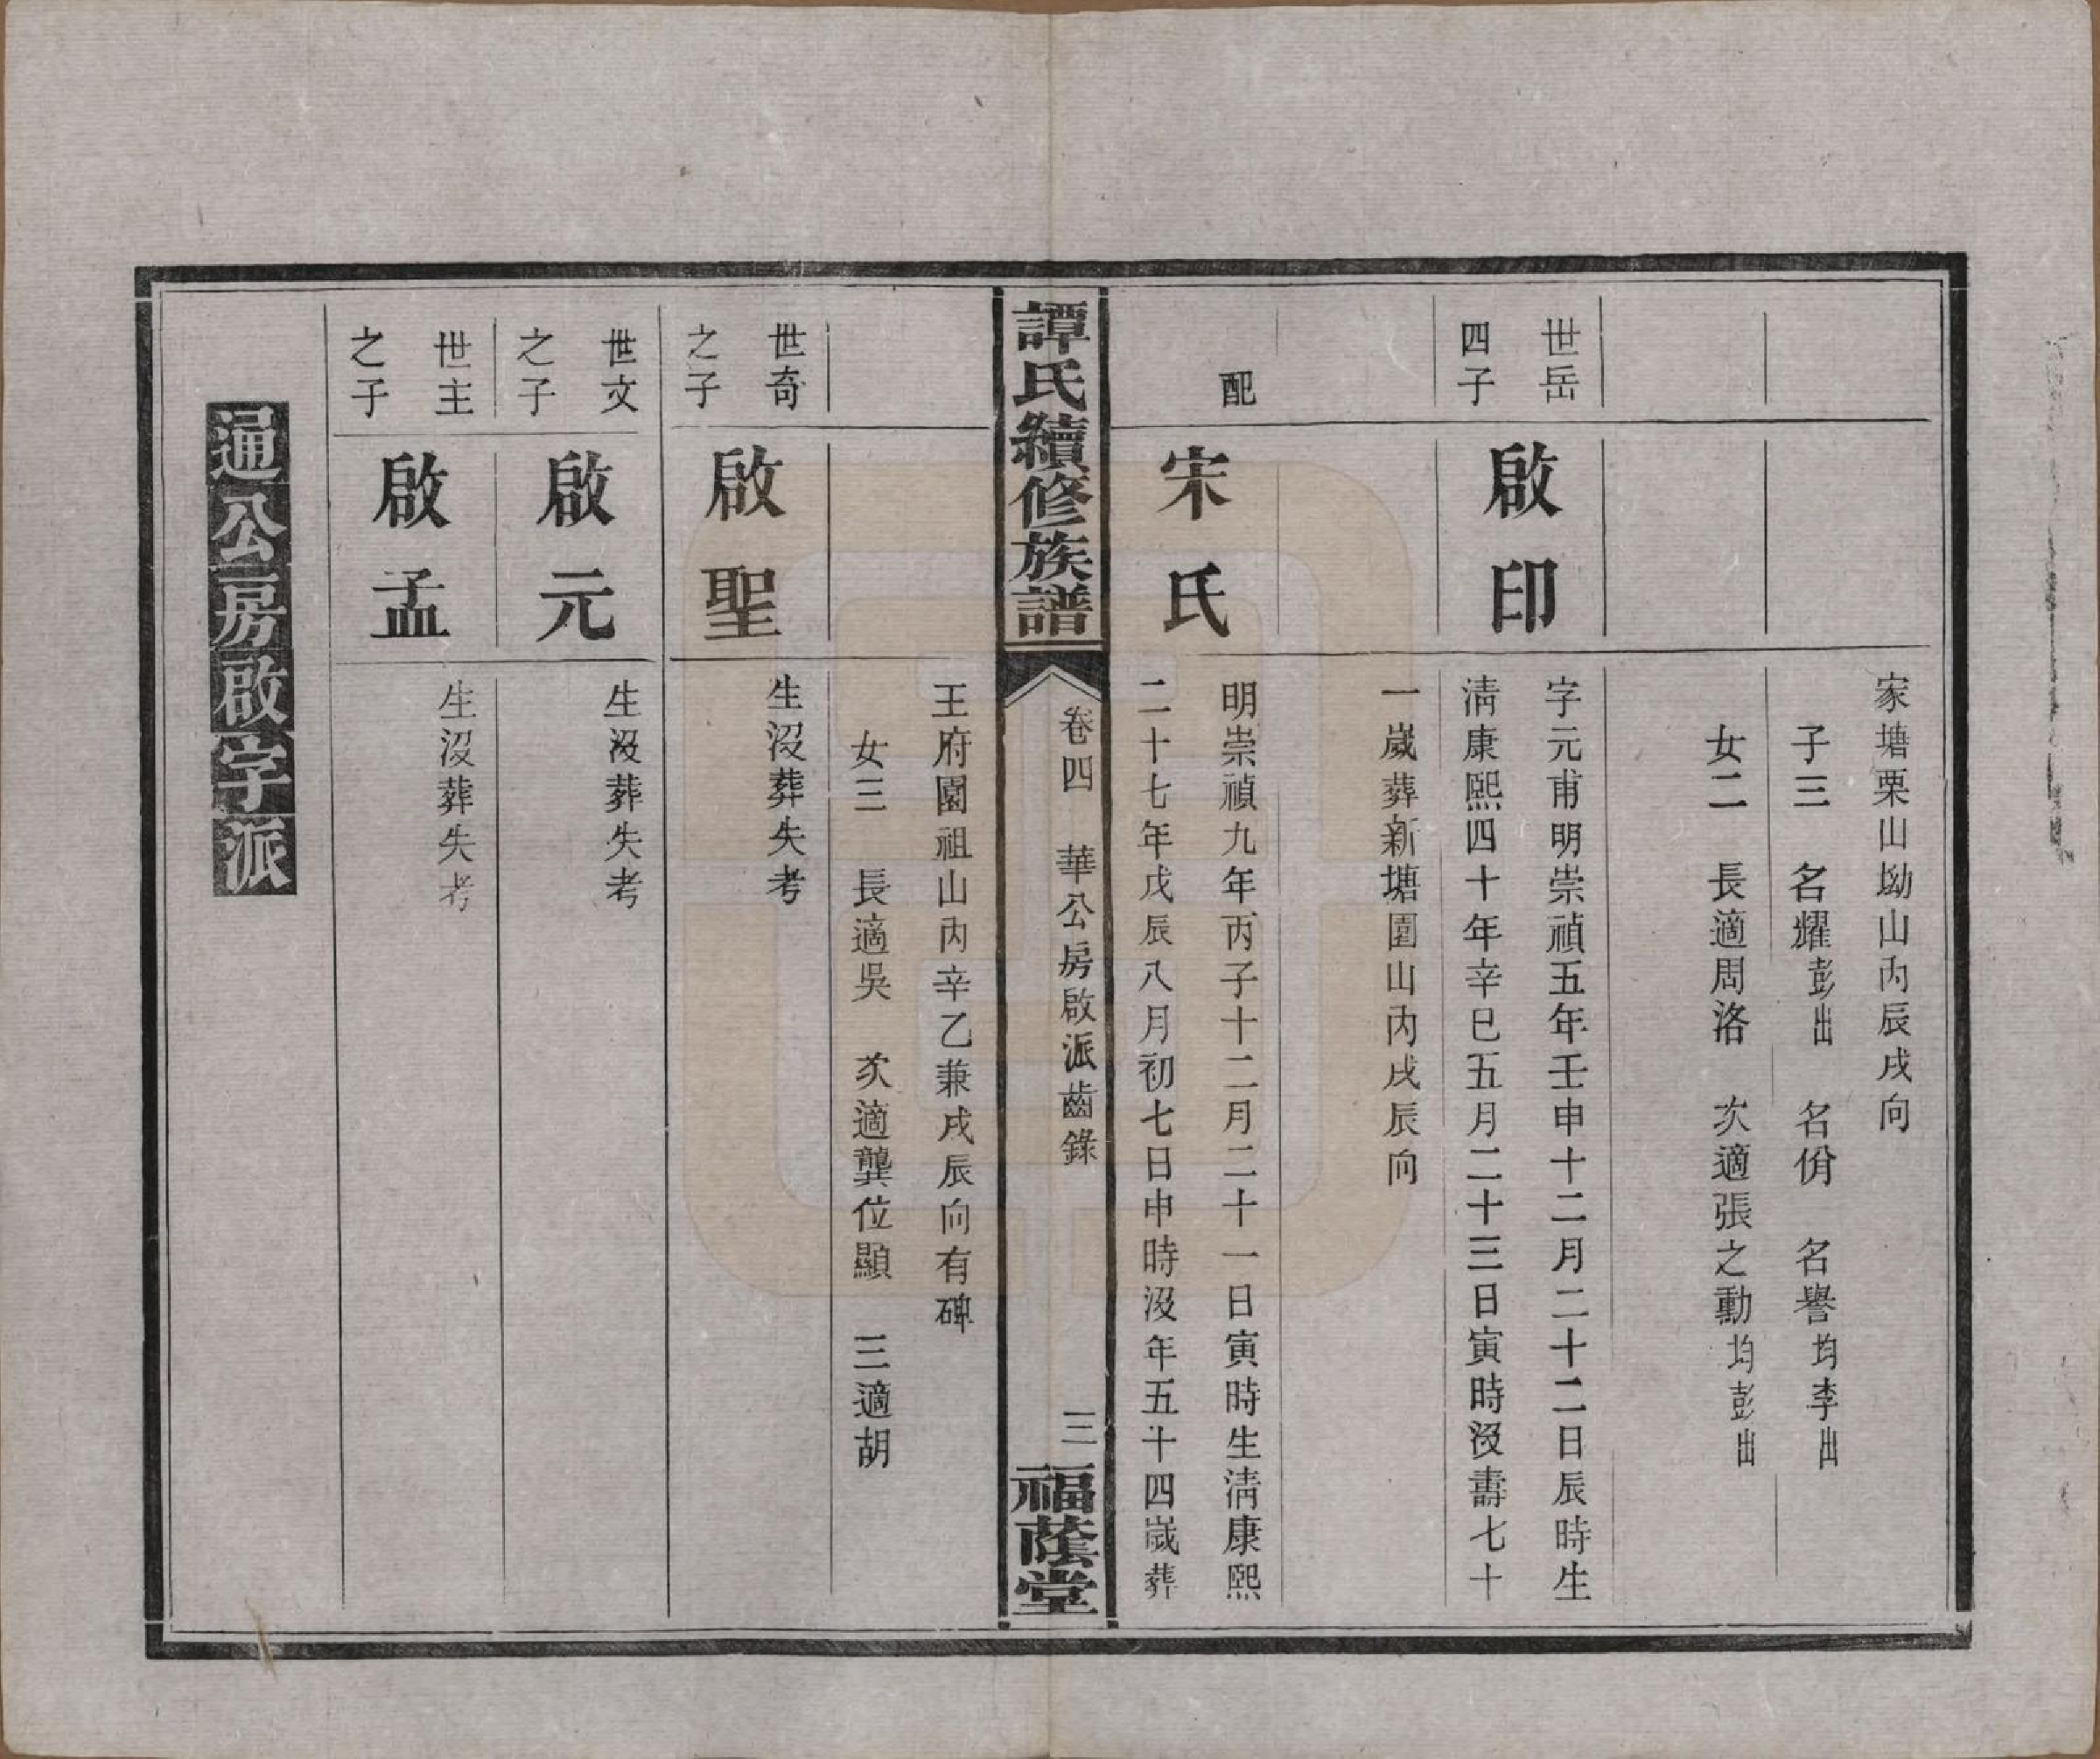 家塘栗山坳山內辰戌向
子三　名耀彭出　名佾　名譽均李出
女二　長適周洛　次適張之動均彭出
世岳
四子
啟印
字元甫明崇禎五年壬申十二月二十二日辰時生
淸康熙四十年辛巳五月二十三日寅時沒壽七十
一歲葬新塘園山內戌辰向
配
宋氏
明崇禎九年丙子十二月二十一日寅時生淸康熙
二十七年戊辰八月初七日申時沒年五十四歲葬
譚氏續修族譜
卷四　華公房啟派齒錄
三
福蔭堂
王府園祖山內辛乙兼戌辰向有碑
女三　長適吳　次適龔位顯　三適胡
世奇
之子
啟聖
生沒葬失考
世文
之子
啟元
生沒葬失考
世主
之子
啟孟
生沒葬失考
通公房啟字派